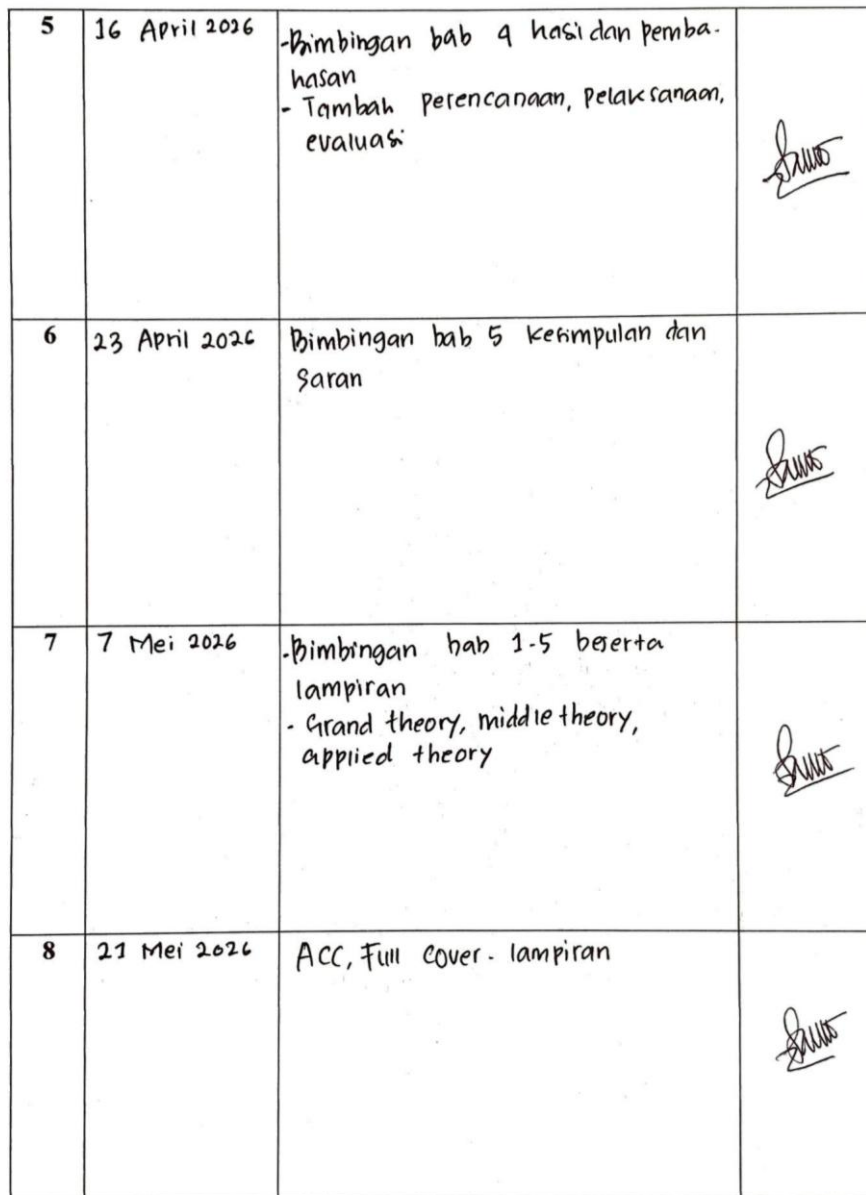 5
16 April 2026
-Bimbingan bab 4 hasi dan pemba-
hasan
- Tambah perencanaan, pelaksanaan,
evaluasi
6
23 April 2026
Bimbingan bab 5 kesimpulan dan
Saran
7
7 Mei 2026
-Bimbingan bab 1-5 beserta
lampiran
- Grand theory, middle theory,
applied theory
8
21 Mei 2026
ACC, Full cover - lampiran